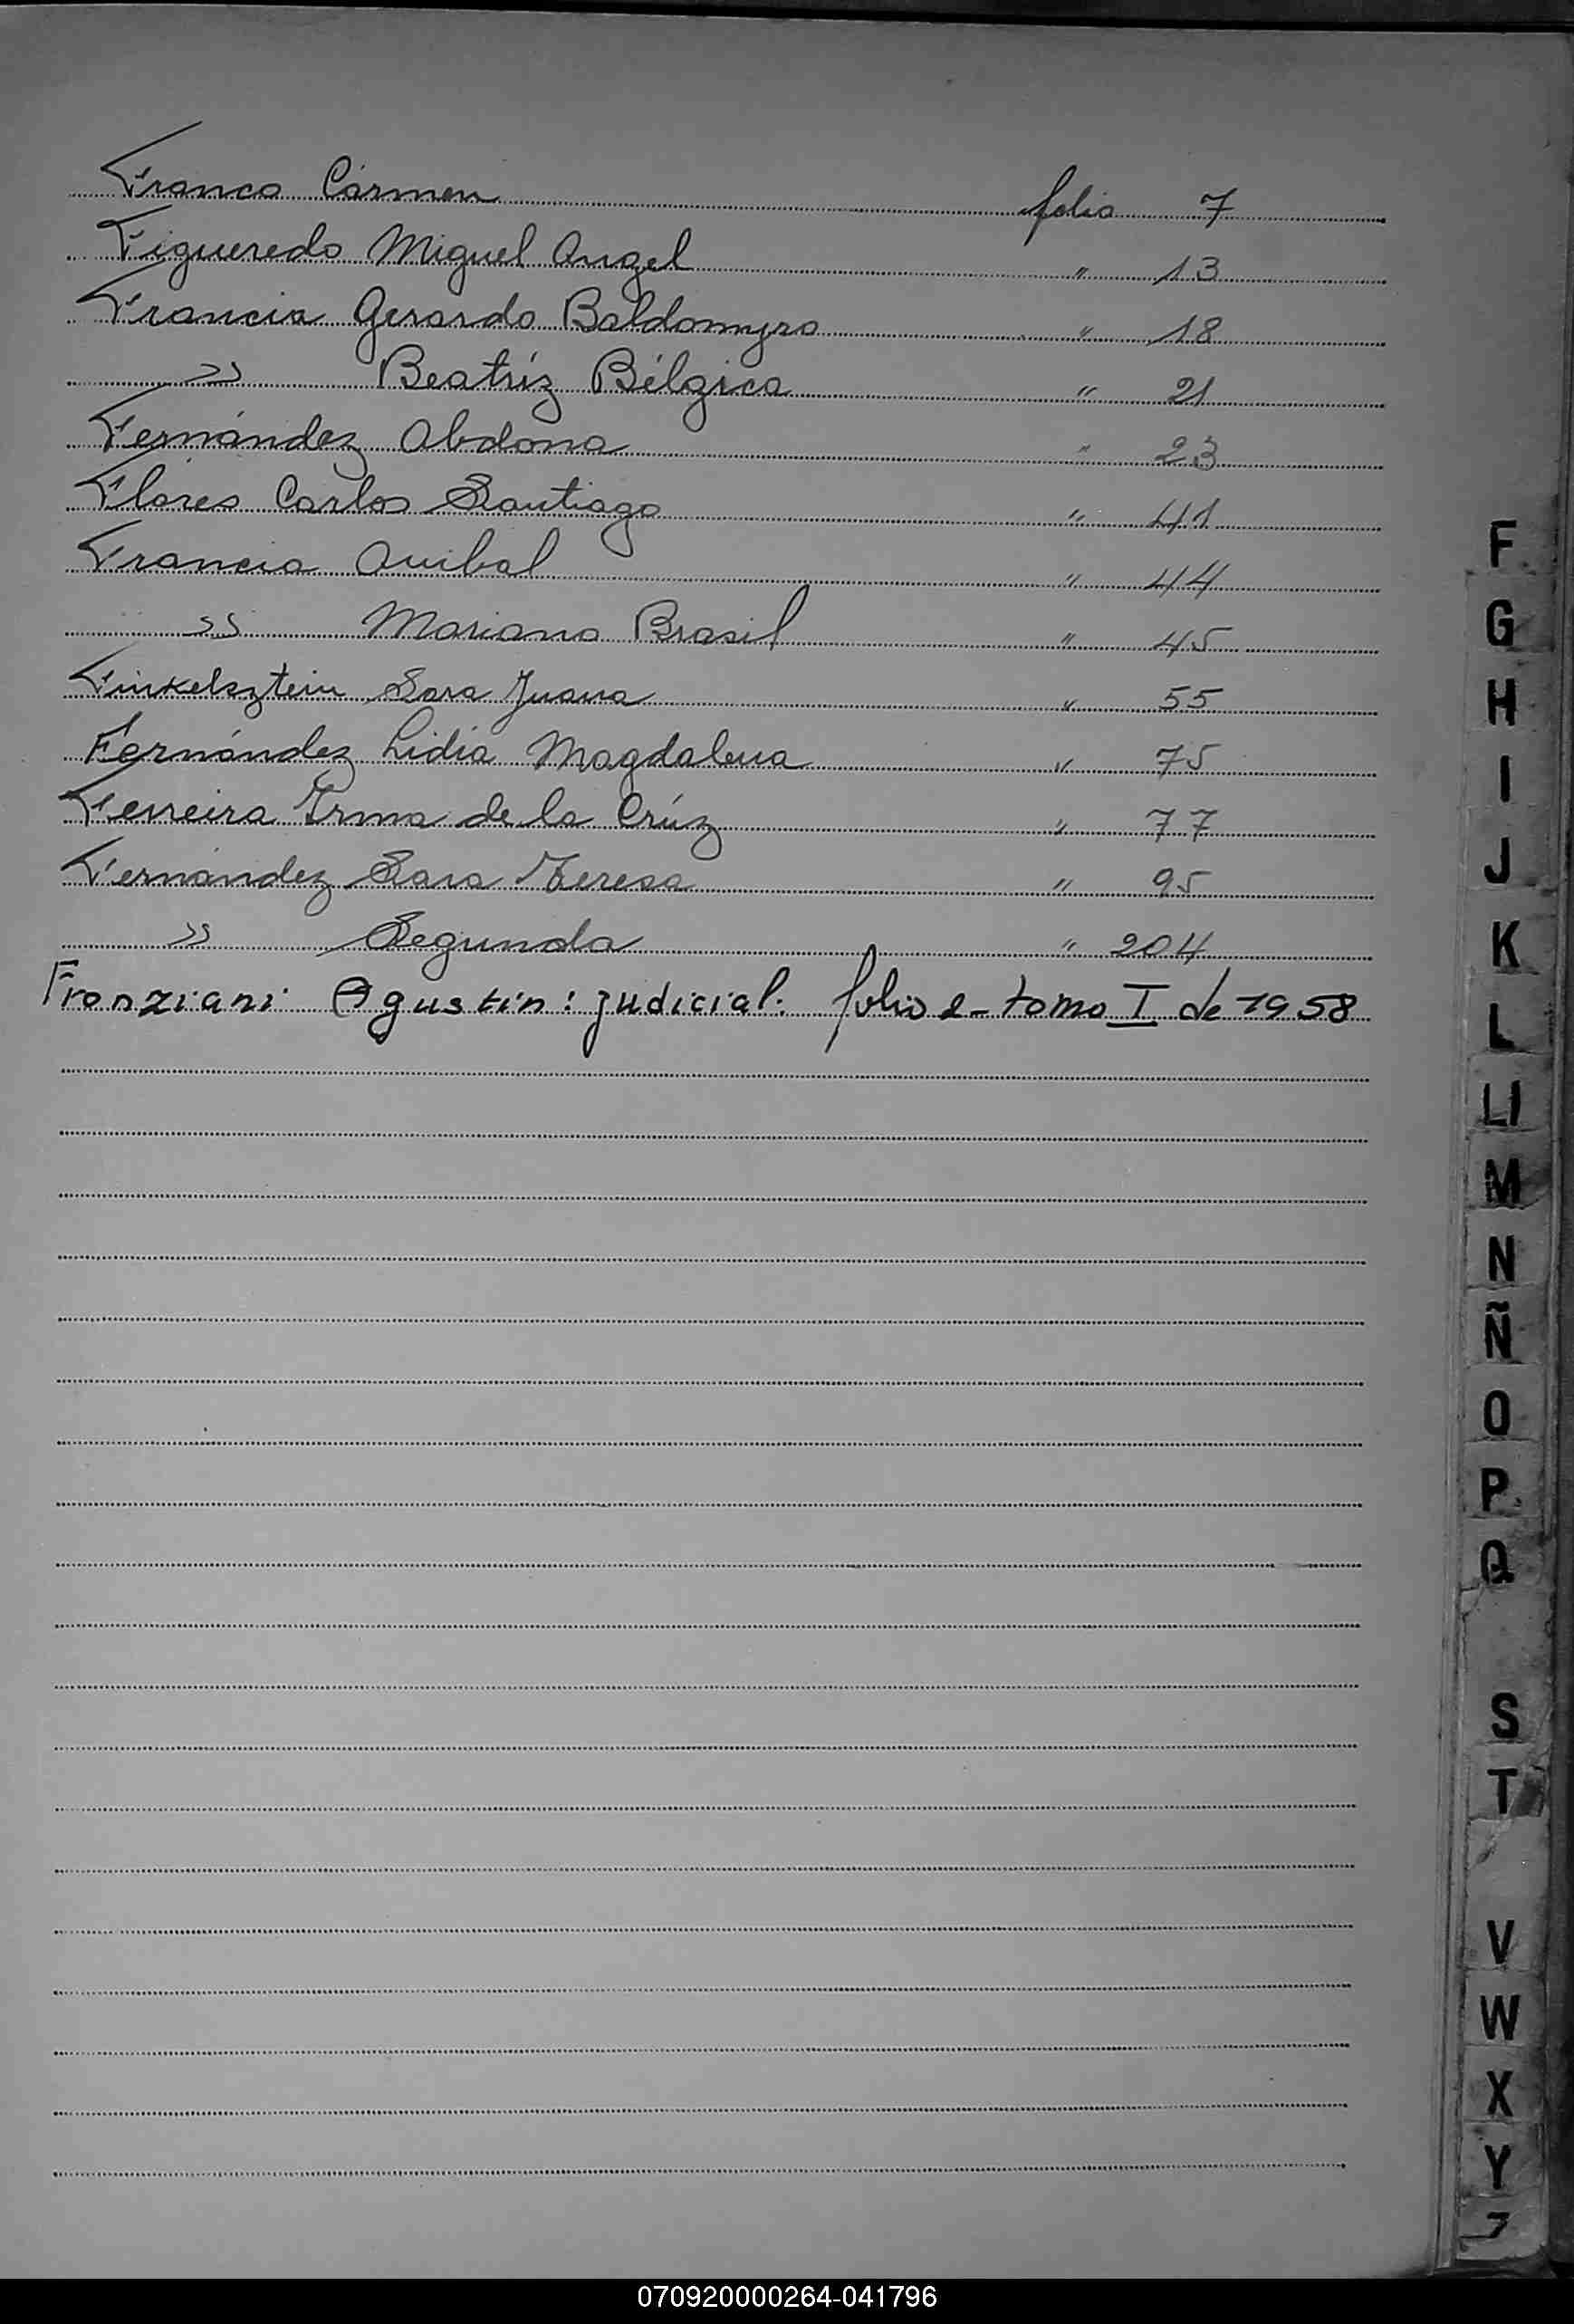 Franco Cármen folio 7
Figueredo Miguel Angel " 13
Francia Gerardo Baldomyro " 18
" Beatríz Bélgica " 21
Fernández Abdona " 23
Flores Carlos Santiago " 41
Francia Anibal " 44
" Mariano Brasil " 45
Finkelsztein Sara Juana " 55
Fernández Lidia Magdalena " 75
Ferreira Irma de la Crúz " 77
Fernández Sara Teresa " 95
" Segunda " 204
Franziani Agustin: judicial. folio 2- tomo I de 1958
F
G
H
I
J
K
L
Ll
M
N
Ñ
O
P
Q
S
T
V
W
X
Y
Z
070920000264-041796